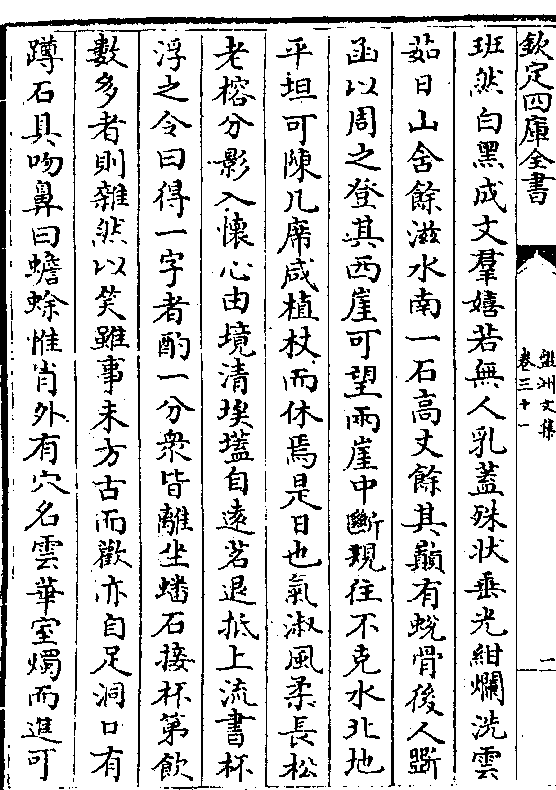 欽定四庫全書
盤洲文集
卷三十一
二
班然白黑成文羣嬉若無人乳蓋殊状垂光紺爛洗雲
茹日山舍餘滋水南一石高丈餘其巔有蛻骨後人斲
函以周之登其西崖可望兩崖中斷現往不克水北地
平坦可陳几席咸植杖而休焉是日也氣淑風柔長松
老榕分影入懷心由境清埃壒自遠茗退抵上流書杯
浮之令曰得一字者酌一分衆皆離坐蟠石接杯第飲
數多者則雜然以笑雖事未方古而歡亦自足洞口有
蹲石具吻鼻曰蟾蜍惟肖外有穴名雲華室燭而進可